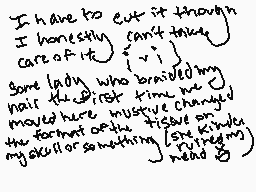 I have to cut it though
I honestly can't take
care of it
Some lady who braided my
hair the first time we
moved here mustive changed
the format of the tissue on
my skull or something (she kinder
ruined my
head